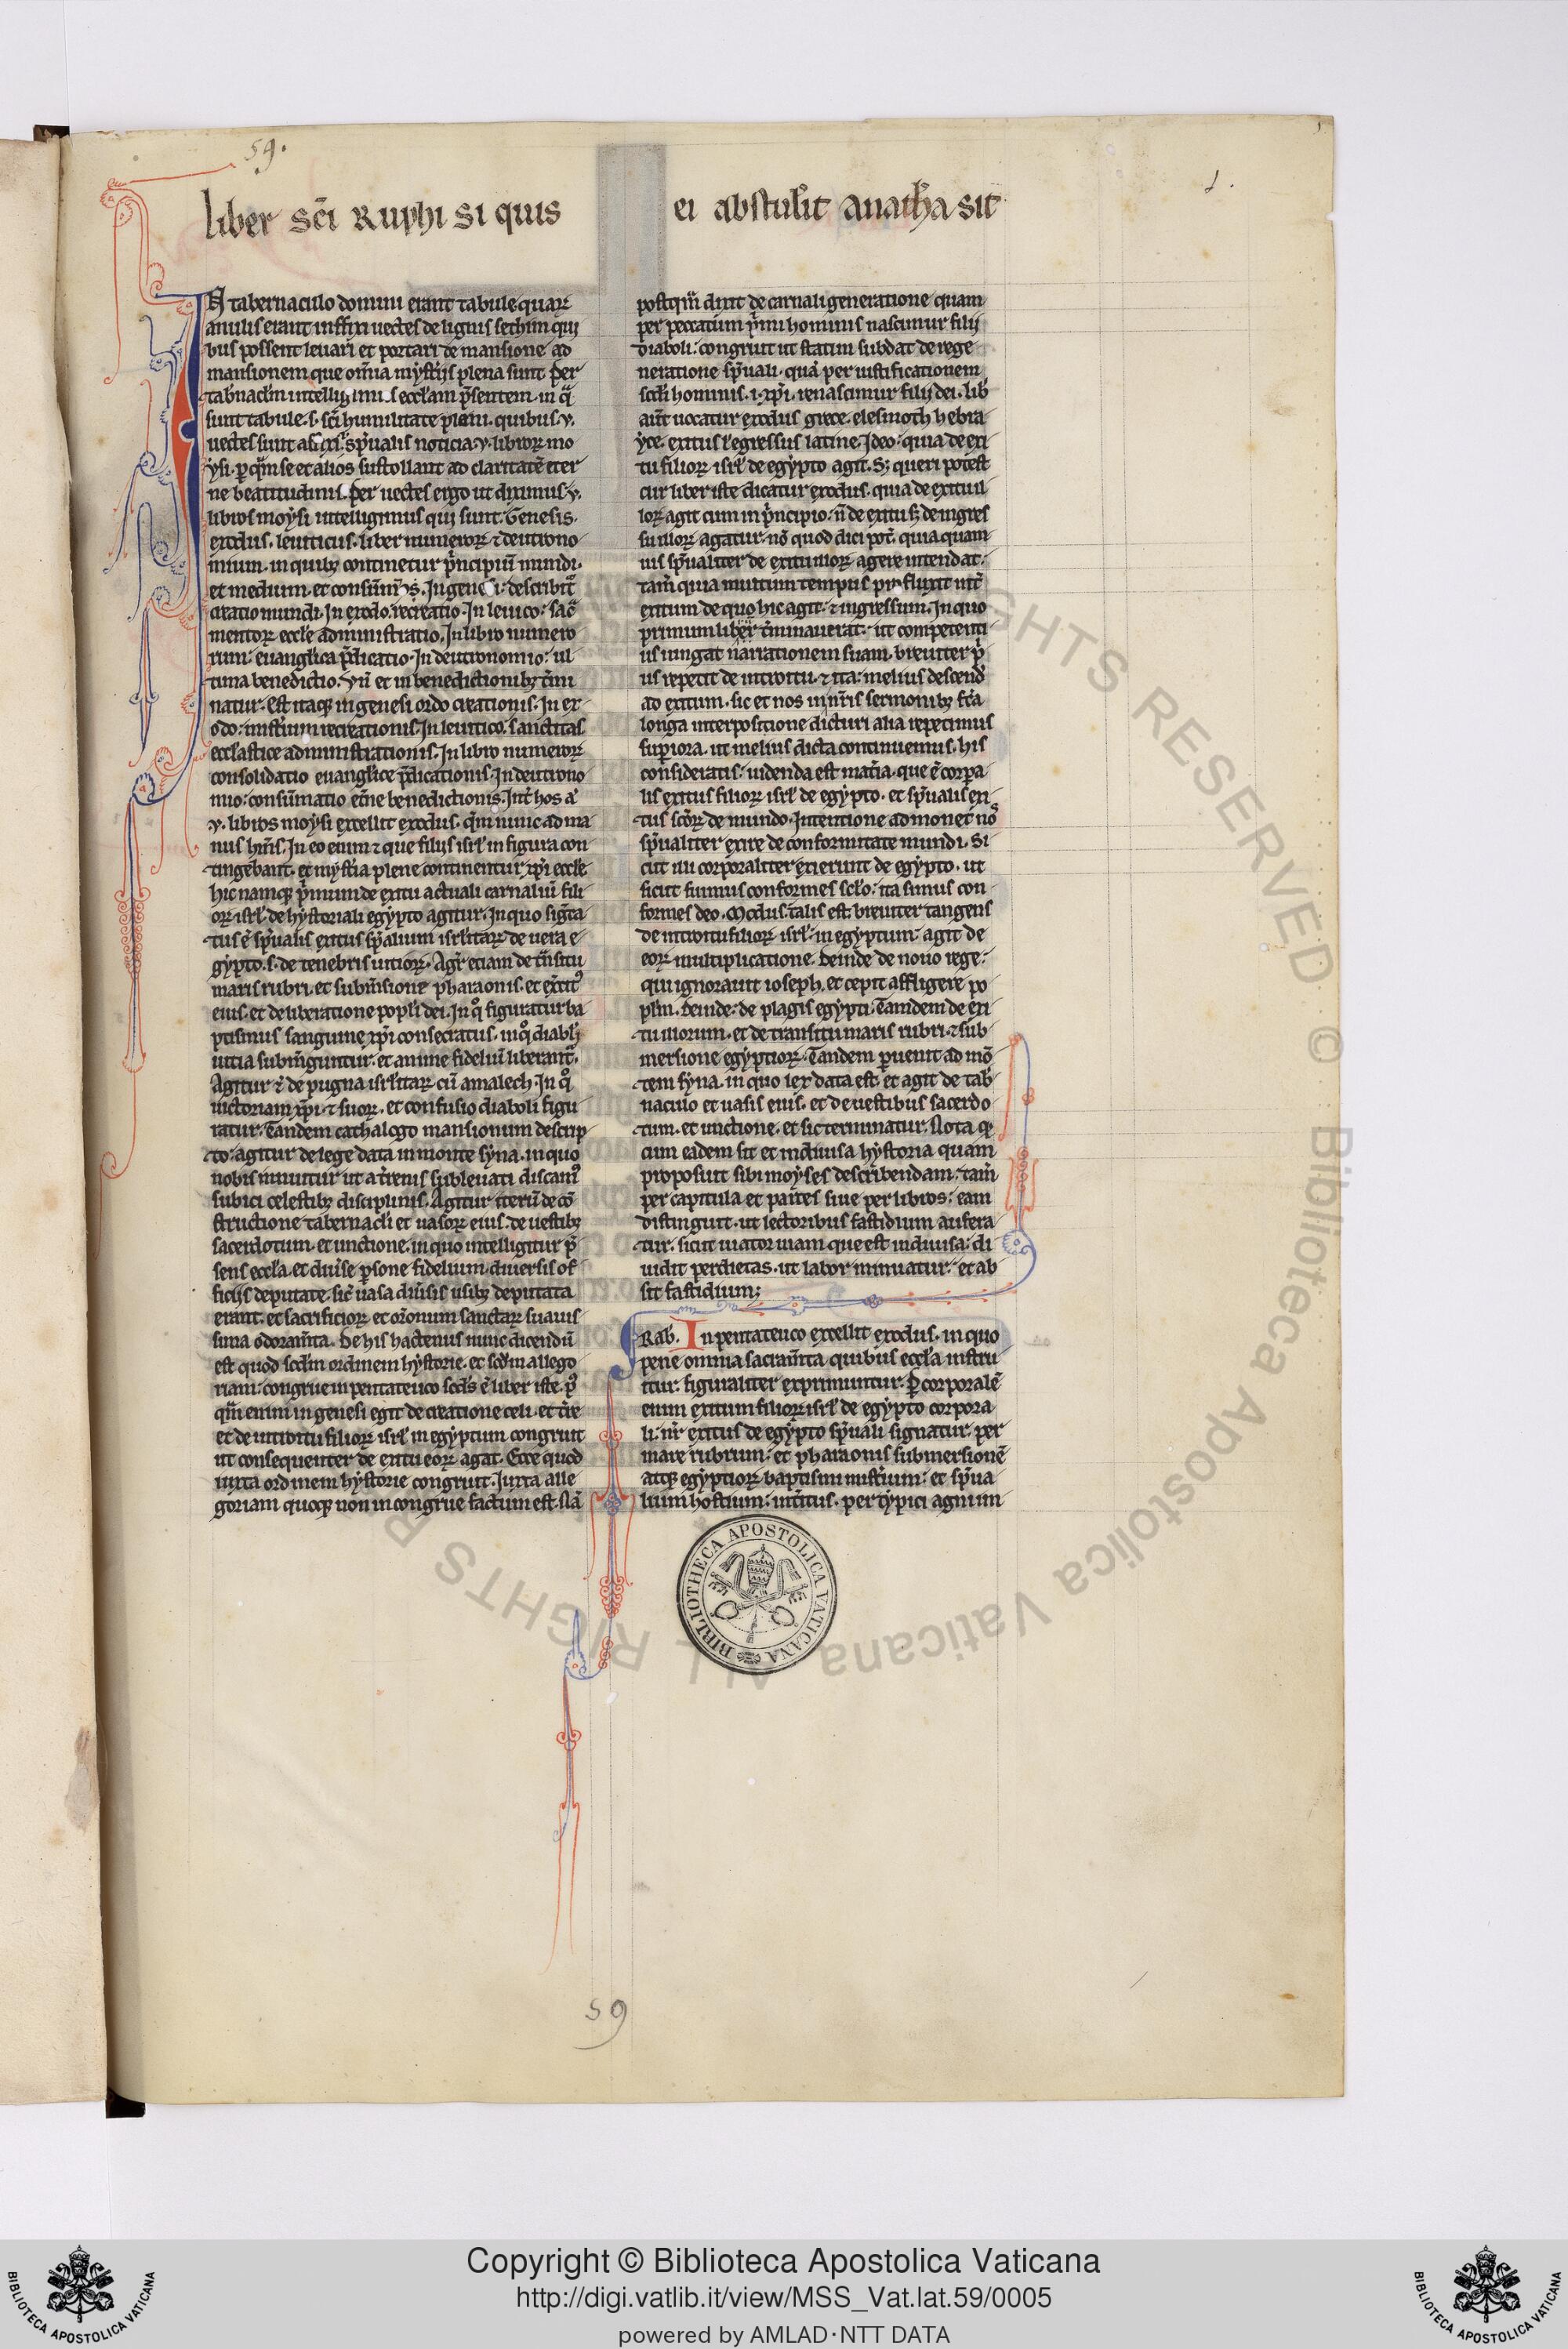 59.
1.
liber sc̃i Ruphi si quis ei abstulit̃ anath̃a sit
IN tabernaculo domini erant tabule quaꝝ
anulis erant inffixi uectes de lignis sethim qui
bus possent leuari et portari de mansione ad
mansionem que om̃ia mysterijs plena sunt Per
tab̃nacl̃m intelligimus eccl̃am p̃sentem. in q̃
sunt tabule .s. sc̃i humilitate plani. quibus .v.
uectes sunt spũalis noticia .v. libroꝝ mo
ysi. se et alios sustollant ad claritatẽ eter
ne beatitudinis. Per uectes ergo ut diximus .v.
libros moysi intelligimus qui sunt. Genesis.
exodus. leuiticus. liber numeroꝝ ⁊ deutrono
mium. in quibꝫ continetur p̃ncipiũ mundi.
et medium. et In genesi: describit̃
creatio mundi. In exodo. recreatio. In leuico: sac̃
mentoꝝ eccl̃e administratio. In libro numero
rum: euangl̃ica p̃dicatio. In deutronomio: ul
tima benedictio. Vñ et in benedictionibꝫ t̃mi
natur. Est itaqꝫ in genesi ordo creationis. In ex
odo: mist̃ium recreationis. In leuitico. sanctitas
eccl̃astice administrationis. In libro numeroꝝ
consolidatio euangl̃ice p̃dicationis. In deutrono
mio: consũmatio et̃ne benedictionis. Int̃ hos a̾
.v. libros moysi excellit exodus. q̃m nunc ad ma
nus hm̃s. In eo enim ⁊ que filijs isrl̃ in figura con
tingebant. et myst̃ia plene continentur xp̃i eccl̃e
hic namqꝫ p̃mum de exitu actuali carnaliũ fili
oꝝ isrl̃ de hystoriali egypto agitur. In quo sig̃ta
tus ẽ spũalis exitus spũalium isrl̃itaꝝ de uera e
gypto .s. de tenebris uitioꝝ. Agit̃ etiam de t̃nsitu
maris rubri. et subm̃sione pharaonis. et ex̃cit⁹
eius. et de liberatione popl̃i dei. In qͦ figuratur ba
ptismus sanguine xp̃i consecratus. in qͦ diabl̃i
uitia subm̃guntur. et anime fideliũ liberant̃.
Agitur ⁊ de pugna isrl̃itaꝝ cũ amalech. In qͦ
uictoriam xp̃i ⁊ suoꝝ. et confusio diaboli figu
ratur. Tandem cathalogo mansionum descrip
to: agitur de lege data in monte syna. in quo
nobis innuitur ut a t̃renis subleuati discam⁹
subici celestibꝫ disciplinis. Agitur iterũ de cõ
structione tabernacl̃i et uasoꝝ eius. de uestibꝫ
sacerdotum. et unctione. in quo intelligitur p̃
sens eccl̃a. et diũse p̃sone fidelium. diuersis of
ficijs deputate. sic̃ uasa diũsis usibꝫ deputata
erant. et sacrificioꝝ et or̃onum sanctaꝝ suauis
sima odoram̃ta. De his hactenus nunc dicendũ
est quod scd̃m ordinem hystorie. et scd̃m allego
riam: congrue in pentateuco scd̃s ẽ liber iste. p⁹
qũm enim in genesi egit de creatione celi. et t̃re
et de introitu filioꝝ isrl̃ in egyptum congruit
ut consequenter de exitu eoꝝ agat. Ecce quod
iuxta ordinem hystorie congruit. Iuxta alle
goriam quoqꝫ non incongrue factum est. Nã
postqũm dixit de carnali generatione quam
per peccatum p̃mi hominis nascimur filij
diaboli: congruit ut statim subdat de rege
neratione spũali. qua per iustificationem
scd̃i hominis .i. xp̃i. renascimur filij dei. lib̃
aũt uocatur exodus grece. elesmoth hebra
yce. exitus l̃ egressus latine. Ideo: quia de exi
tu filioꝝ isrl̃ de egypto agit. Sꝫ queri potest
cur liber iste dicatur exodus. quia de exitu il
loꝝ agit cum in p̃ncipio: ñ de exitu sꝫ de ingres
su illoꝝ agatur. nõ quod dici pot̃. quia quam
uis spũaliter de exitu illoꝝ agere intendat:
tam̃ quia multum tempus p̱fluxit int̃
exitum de quo hic agit. ⁊ ingressum. In quo
primum liber t̃minauerat: ut competenti
us iungat narrationem suam. breuiter p̃
us repetit de introitu. ⁊ ita: melius descend̃
ad exitum. sic et nos in nr̃is sermonibꝫ fc̃a
longa interpositione dicturi alia repetimus
supiora. ut melius dicta continuemus. his
consideratis: uidenda est mat̃ia. que ẽ corpa
lis exitus filioꝝ isrl̃ de egypto. et spũalis exi
tus sc̃oꝝ de mundo. Intentione admonet noˢ
spũaliter exire de conformitate mundi. Si
cut illi corporaliter exierunt de egypto. ut
sicut fuimus conformes scl̃o: ita simus con
formes deo. Modus talis est. breuiter tangens
de introitu filioꝝ isrl̃. in egyptum. agit de
eoꝝ multiplicatione. Deinde de nouo rege:
qui ignorauit ioseph. et cepit affligere po
pl̃m. Deinde: de plagis egypti. Tamdem de exi
tu illorum. et de transitu maris rubri. ⁊ sub
mersione egyptioꝝ. Tandem p̱uenit ad mõ
tem syna. in quo lex data est. et agit de tab̃
naculo et uasis eius. et de uestibus sacerdo
tum. et unctione. et sic terminatur. Nota qͩ
cum eadem sit et indiuisa hystoria quam
proposuit sibi moyses describendam: tam̃
per capitula et partes siue per libros: eam
distinguit. ut lectoribus fastidium aufera
tur. sicut uiator uiam que est indiuisa: di
uidit per dietas. ut labor minuatur: et ab
sit fastidium;
Rab. In pentateuco excellit exodus. in quo
pene omnia sacram̃ta quibus eccl̃a instru
itur. figuraliter exprimuntur. P̱ corporalẽ
enim exitum filioꝝ isrl̃ de egypto corpora
li: nr̃ exitus de egypto spũali signatur. per
mare rubrum: et pharaonis submersionẽ
atqꝫ egyptioꝝ baptismi mist̃ium: et spũa
lium hostium: int̃itus. per typici agni im
BIBLIOTHECA APOSTOLICA VATICANA
59
ALL RIGHTS RESERVED © Biblioteca Apostolica Vaticana
Copyright © Biblioteca Apostolica Vaticana
http://digi.vatlib.it/view/MSS_Vat.lat.59/0005
powered by AMLAD·NTT DATA
BIBLIOTECA APOSTOLICA VATICANA
BIBLIOTECA APOSTOLICA VATICANA